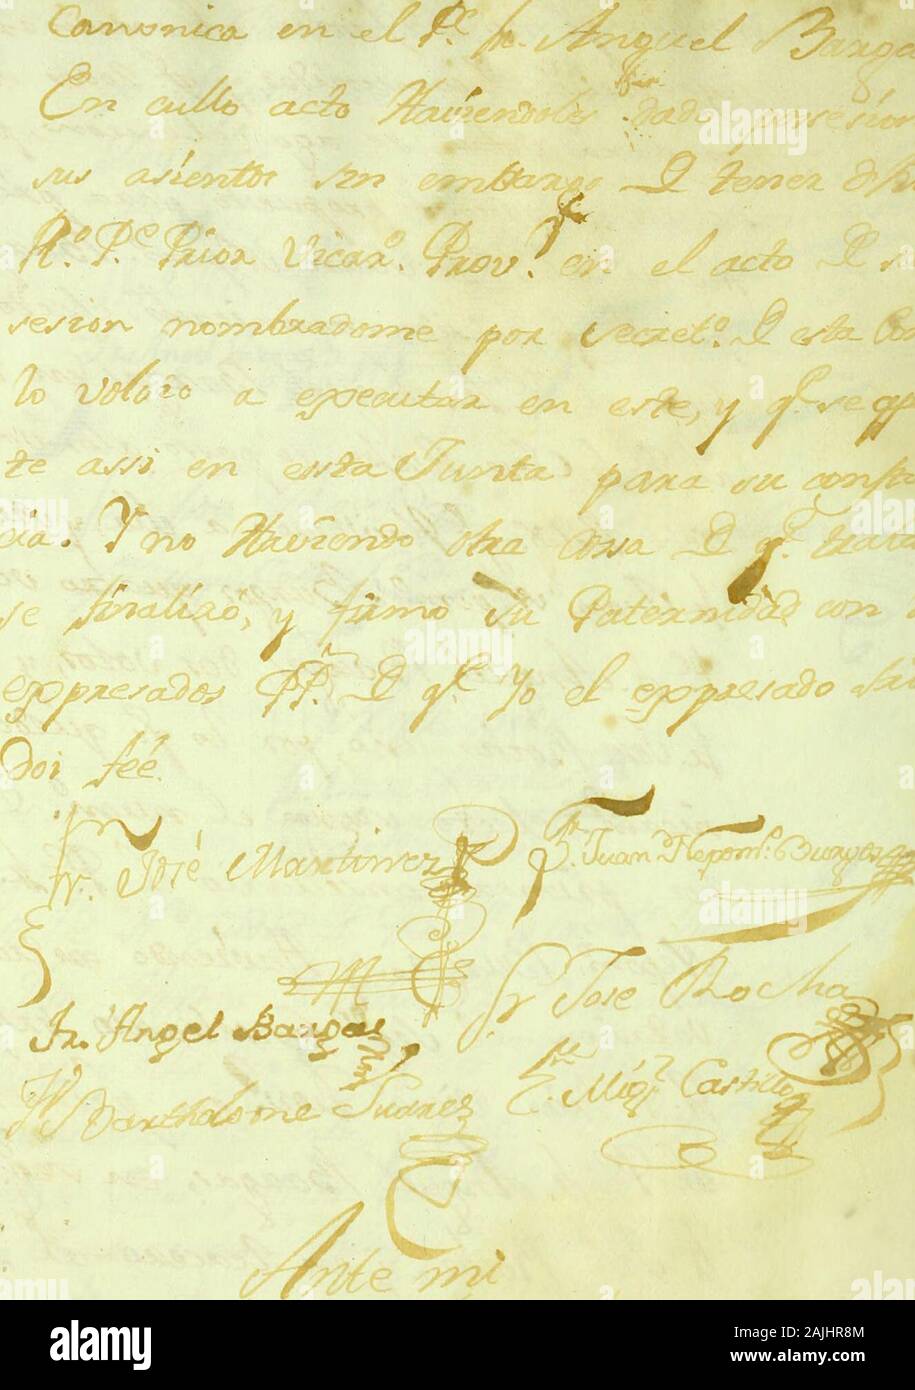 Canonica en el P.e fr. Anguel Barga
En cullo acto Haviendolis dado posesion
sus asientos sin embargo D tener
R.o P.e Prior Vicar.o Prov.l en el acto D
sesion nombradome por Secret.o D esta Con
lo volvio a expecutar en este, y q.e se
te assi en esta Junta para su consta
cia. Y no Haviendo otra Cosa D q.e trata
se finalizò, y firmo su Paternidad con
expresados PP. D q.e Yo el expresado
doi feé.
Fr. José Martinez
Fr. Juan Nepom.o Burgos
Fr. Angel Bargas
Fr. Jose Rocha
Fr. Bartholome Suarez
Fr. Mig.l Castillo
Ante mi
alamy
Image ID: 2AJHR8M
www.alamy.com